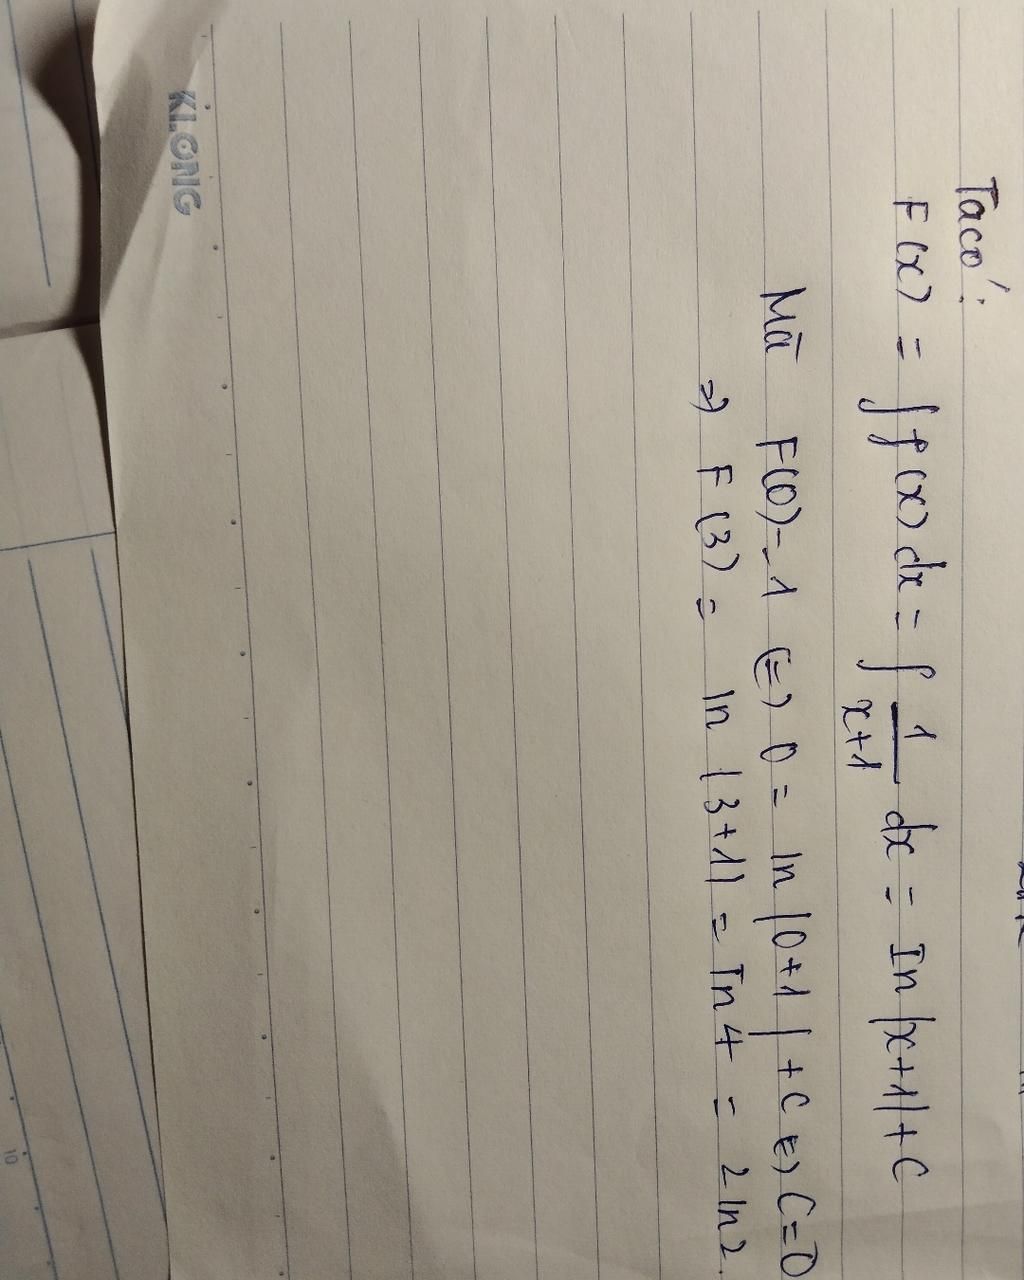 Ta có:
F(x) = ∫ f(x) dx = ∫ 1/(x+1) dx = ln |x+1| + C
Mà F(0) = 1 (=) 0 = ln |0+1| + C (=) C = 0
=> F(3) = ln |3+1| = ln 4 = 2 ln 2.
KLONG
10